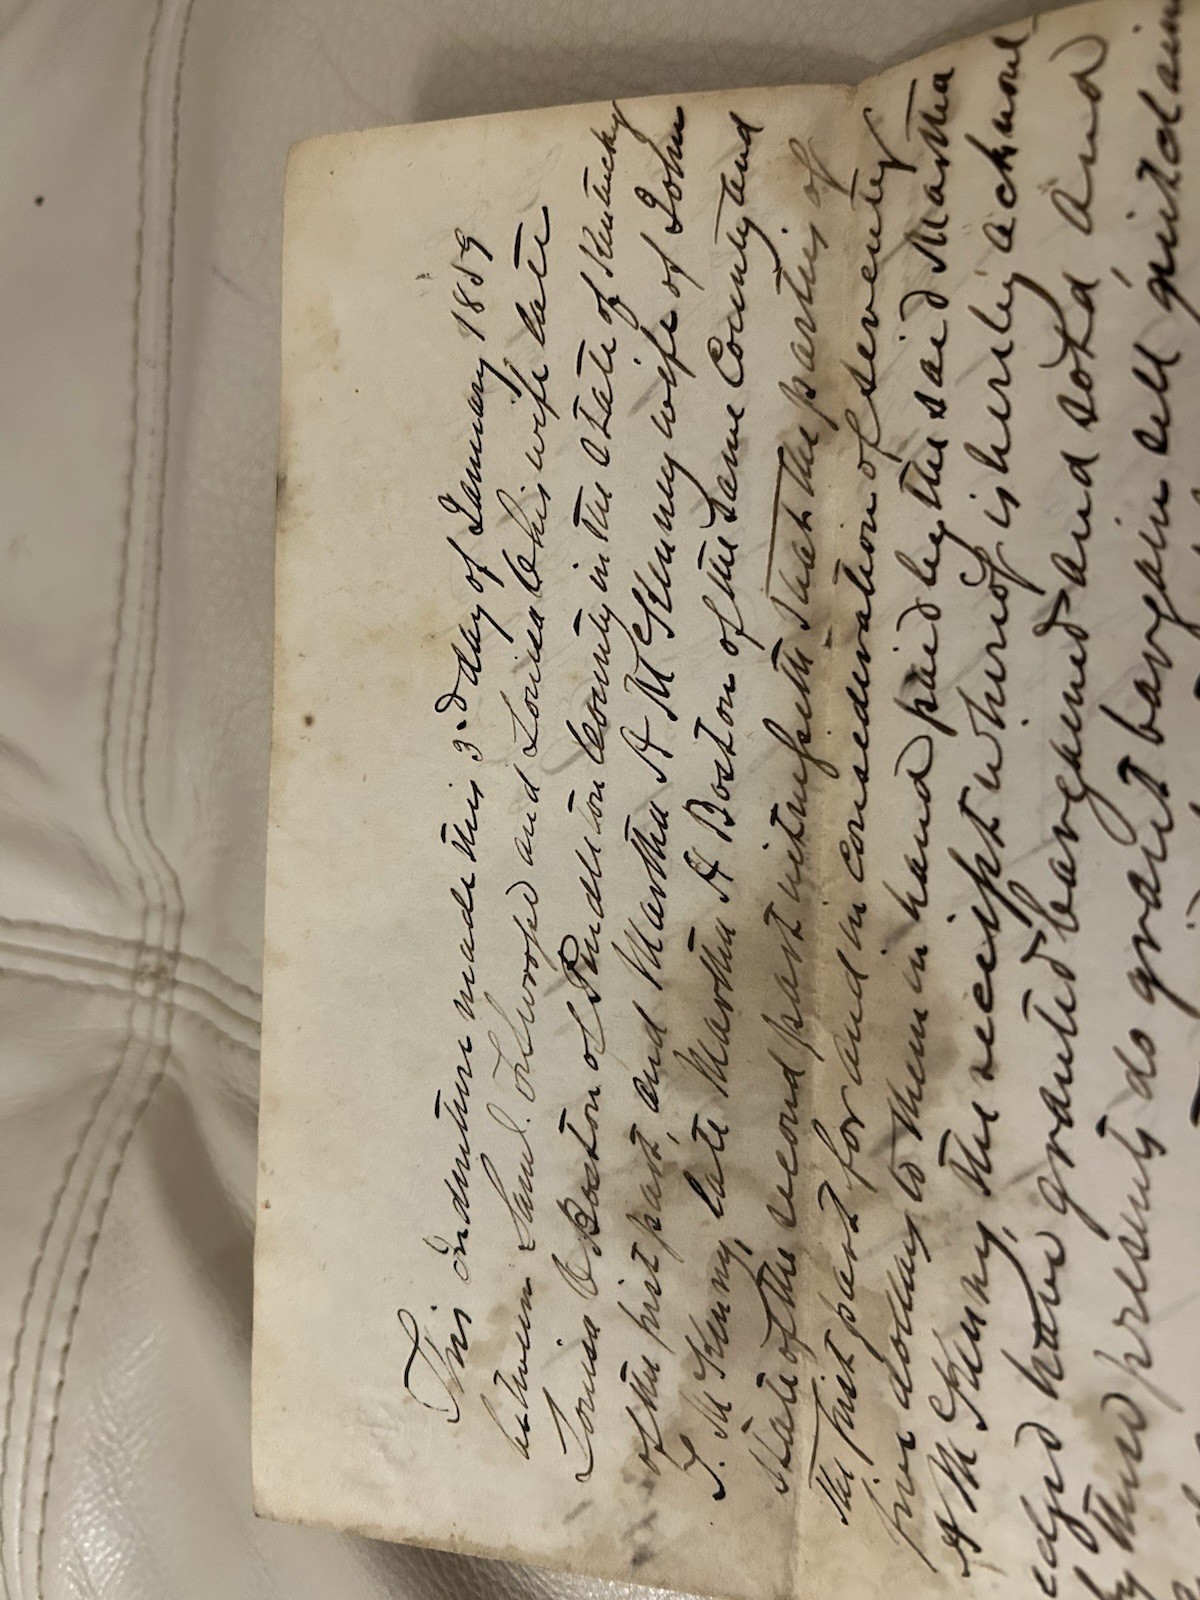 This Indenture made this 3d day of January 1859
between Saml. and Louisa C his wife late
Louisa C Boston of Pendleton County in the State of Kentucky
of the first part, and Martha A McKenny wife of John
T. McKenny, late Martha A Boston of the same County and
State of the second part witnesseth That the parties of
the first part for and in consideration of seventy
five dollars to them in hand paid by the said Martha
A McKenny, the receipt whereof is hereby acknowl
edged have granted bargained and sold, and
by these presents do grant bargain sell quitclaim